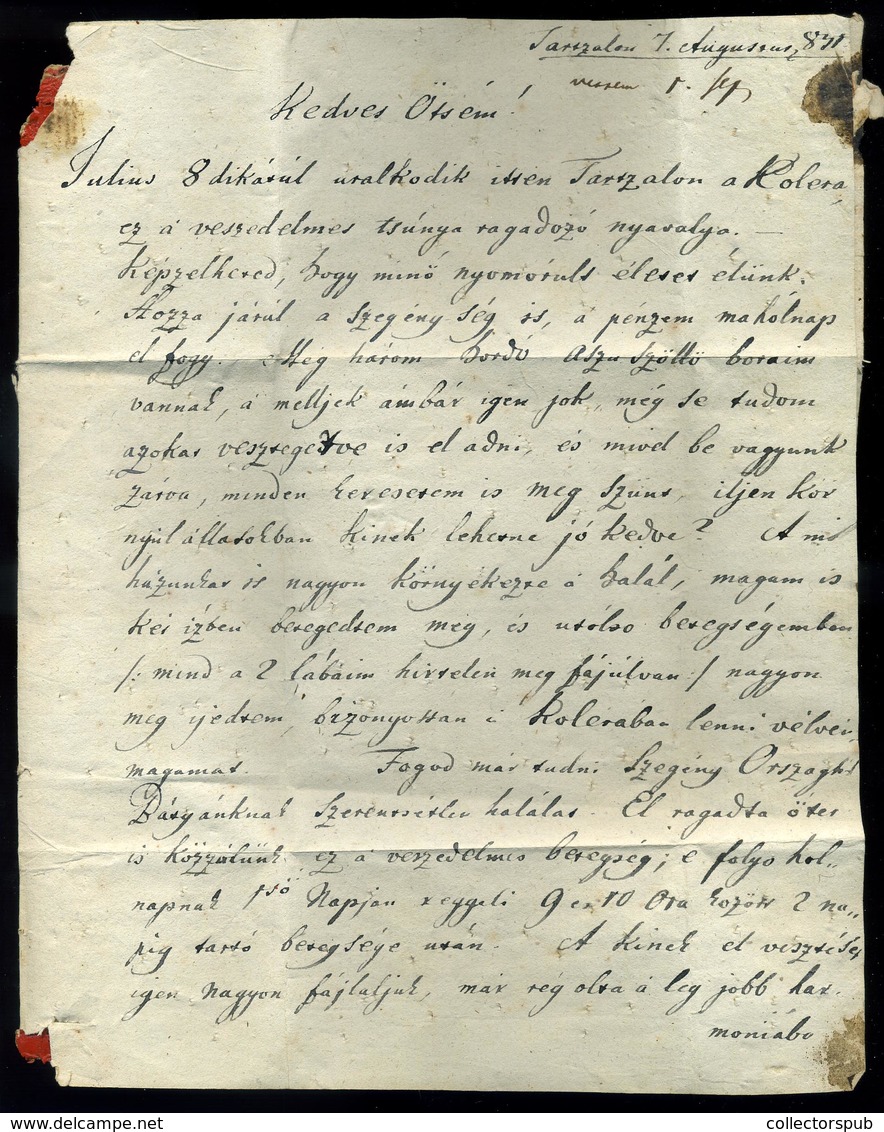 Tarszalon 7. Augusztus, 831
vettem 1. sep,
Kedves Ötsém!
Julius 8dikárúl uralkodik itten Tarszalon a Kolera
ez á veszedelmes tsúnya ragadozó nyavalya. —
Képzelheted, hogy minő nyomórult életet élünk.
Hozza járúl a szegénység is, a pénzem mahólnap
el fogy. Még három hordó Aszu Szöllő boraim
vannak, á melljek ámbár igen jok, még se tudom
azokat vesztegetve is el adni, és mivel be vagyunk
zárva, minden keresetem is meg szünt, iljen kör
nyúl állatokban kinek lehetne jó kedve? A mi
házunkat is nagyon környékezte á halál, magam is
két ízben betegedtem meg, és utólso betegségemben
/: mind a 2 lábáim hirtelen meg fájúlván :/ nagyon
meg ijedtem, bizonyossan á Kolerában lenni vélvén
magamat. Fogod már tudni Szegény Orszagh
Bátyánknak szerentsétlen halálát. El ragadta őtet
is közzülünk ez á veszedelmes betegség; e folyo hol-
napnak 1ső Napján reggeli 9 es 10 Ora között 2 na-
pig tartó betegsége után. A kinek el vesztését
igen nagyon fájlaljuk, már rég olta á leg jobb har-
moniába
collectorspub